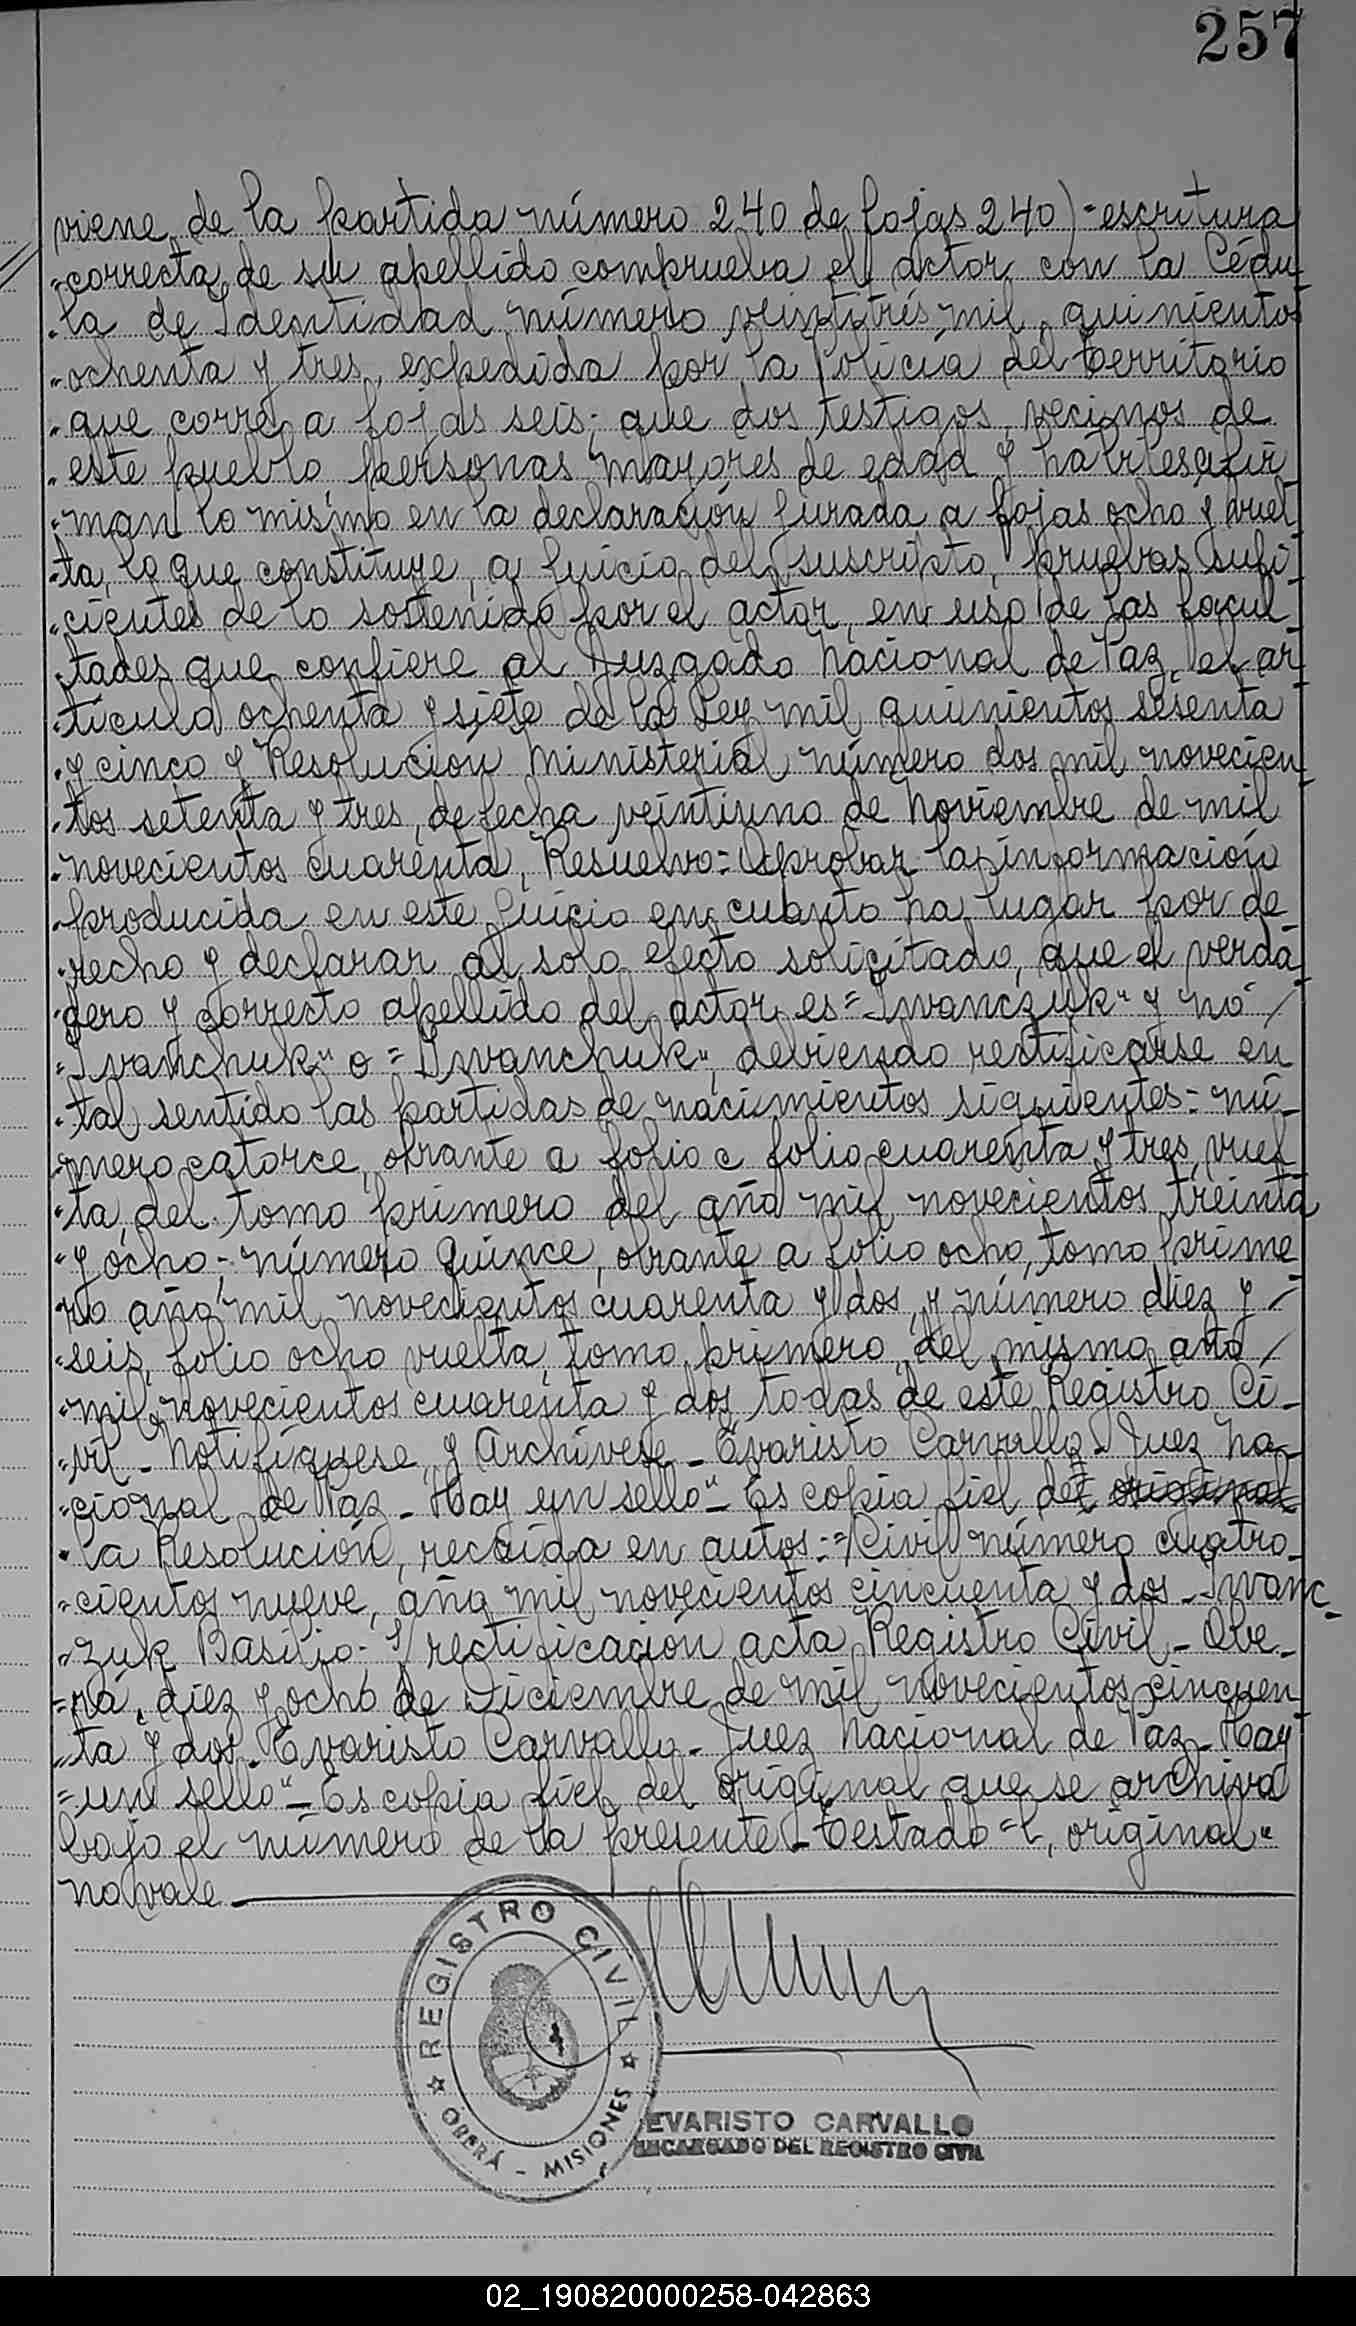 257
viene de la partida número 240 de fojas 240) - escritura
"correcta de su apellido comprueba el actor con la Cédu
"la de Identidad número veintitrés mil quinientos
"ochenta y tres, expedida por la Policía del Territorio
"que corre a fojas seis; que dos testigos, vecinos de
"este pueblo, personas mayores de edad y hábiles, afir
"man lo mismo en la declaración jurada a fojas ocho y vuel
"ta, lo que constituye, a juicio del suscripto, pruebas sufi
"cientes de lo sostenido por el actor, en uso de las facul
"tades que confiere al Juzgado Nacional de Paz, el ar
"tículo ochenta y siete de la Ley mil quinientos sesenta
"y cinco y Resolución Ministerial número dos mil novecien
"tos setenta y tres, de fecha veintiuno de Noviembre de mil
"novecientos cuarenta, Resuelvo: Aprobar la información
"producida en este juicio en cuanto ha lugar por de
"recho y declarar al solo efecto solicitado, que el verda
"dero y correcto apellido del actor es "Iwanczuk" y no /
"Ivanchuk" o "Iwanchuk", debiendo rectificarse en
"tal sentido las partidas de nacimientos siguientes: nú-
"mero catorce, obrante a folio c folio cuarenta y tres, vuel
"ta, del tomo primero del año mil novecientos treinta
"y ocho; número quince, obrante a folio ocho, tomo prime
"ro año mil novecientos cuarenta y dos, y número diez y /
"seis, folio ocho vuelta, tomo primero, del mismo año /
"mil novecientos cuarenta y dos todas de este Registro Ci-
"vil - Notifíquese y Archívese - Evaristo Carvallo - Juez Na-
"cional de Paz - Hay un sello" - Es copia fiel del original
"la Resolución, recaída en autos: "Civil número cuatro-
"cientos nueve, año mil novecientos cincuenta y dos - Iwanc-
"zuk Basilio - S/ rectificación acta Registro Civil - Obe-
"rá, diez y ocho de Diciembre de mil novecientos cincuen
"ta y dos - Evaristo Carvallo - Juez Nacional de Paz - Hay
"un sello" - Es copia fiel del original que se archiva
bajo el número de la presente - Testado "l, original"
no vale
REGISTRO CIVIL
OBERÁ - MISIONES
EVARISTO CARVALLO
ENCARGADO DEL REGISTRO CIVIL
02_190820000258-042863